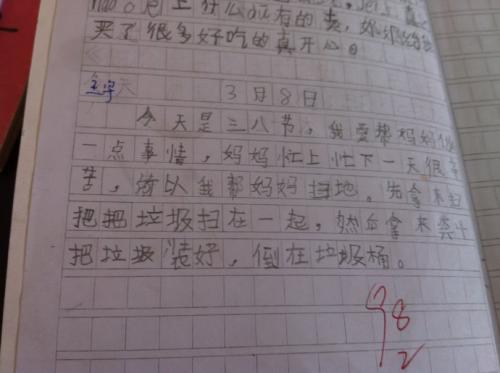 上什么dou有的卖，
买了很多好吃的真开心。
天 3月8日
今天是三八节，我要帮妈妈做
一点事情，妈妈忙上忙下一天很辛
苦，所以我帮妈妈扫地。先拿来扫
把把垃圾扫在一起，然后拿来粪斗
把垃圾装好，倒在垃圾桶。
98
2